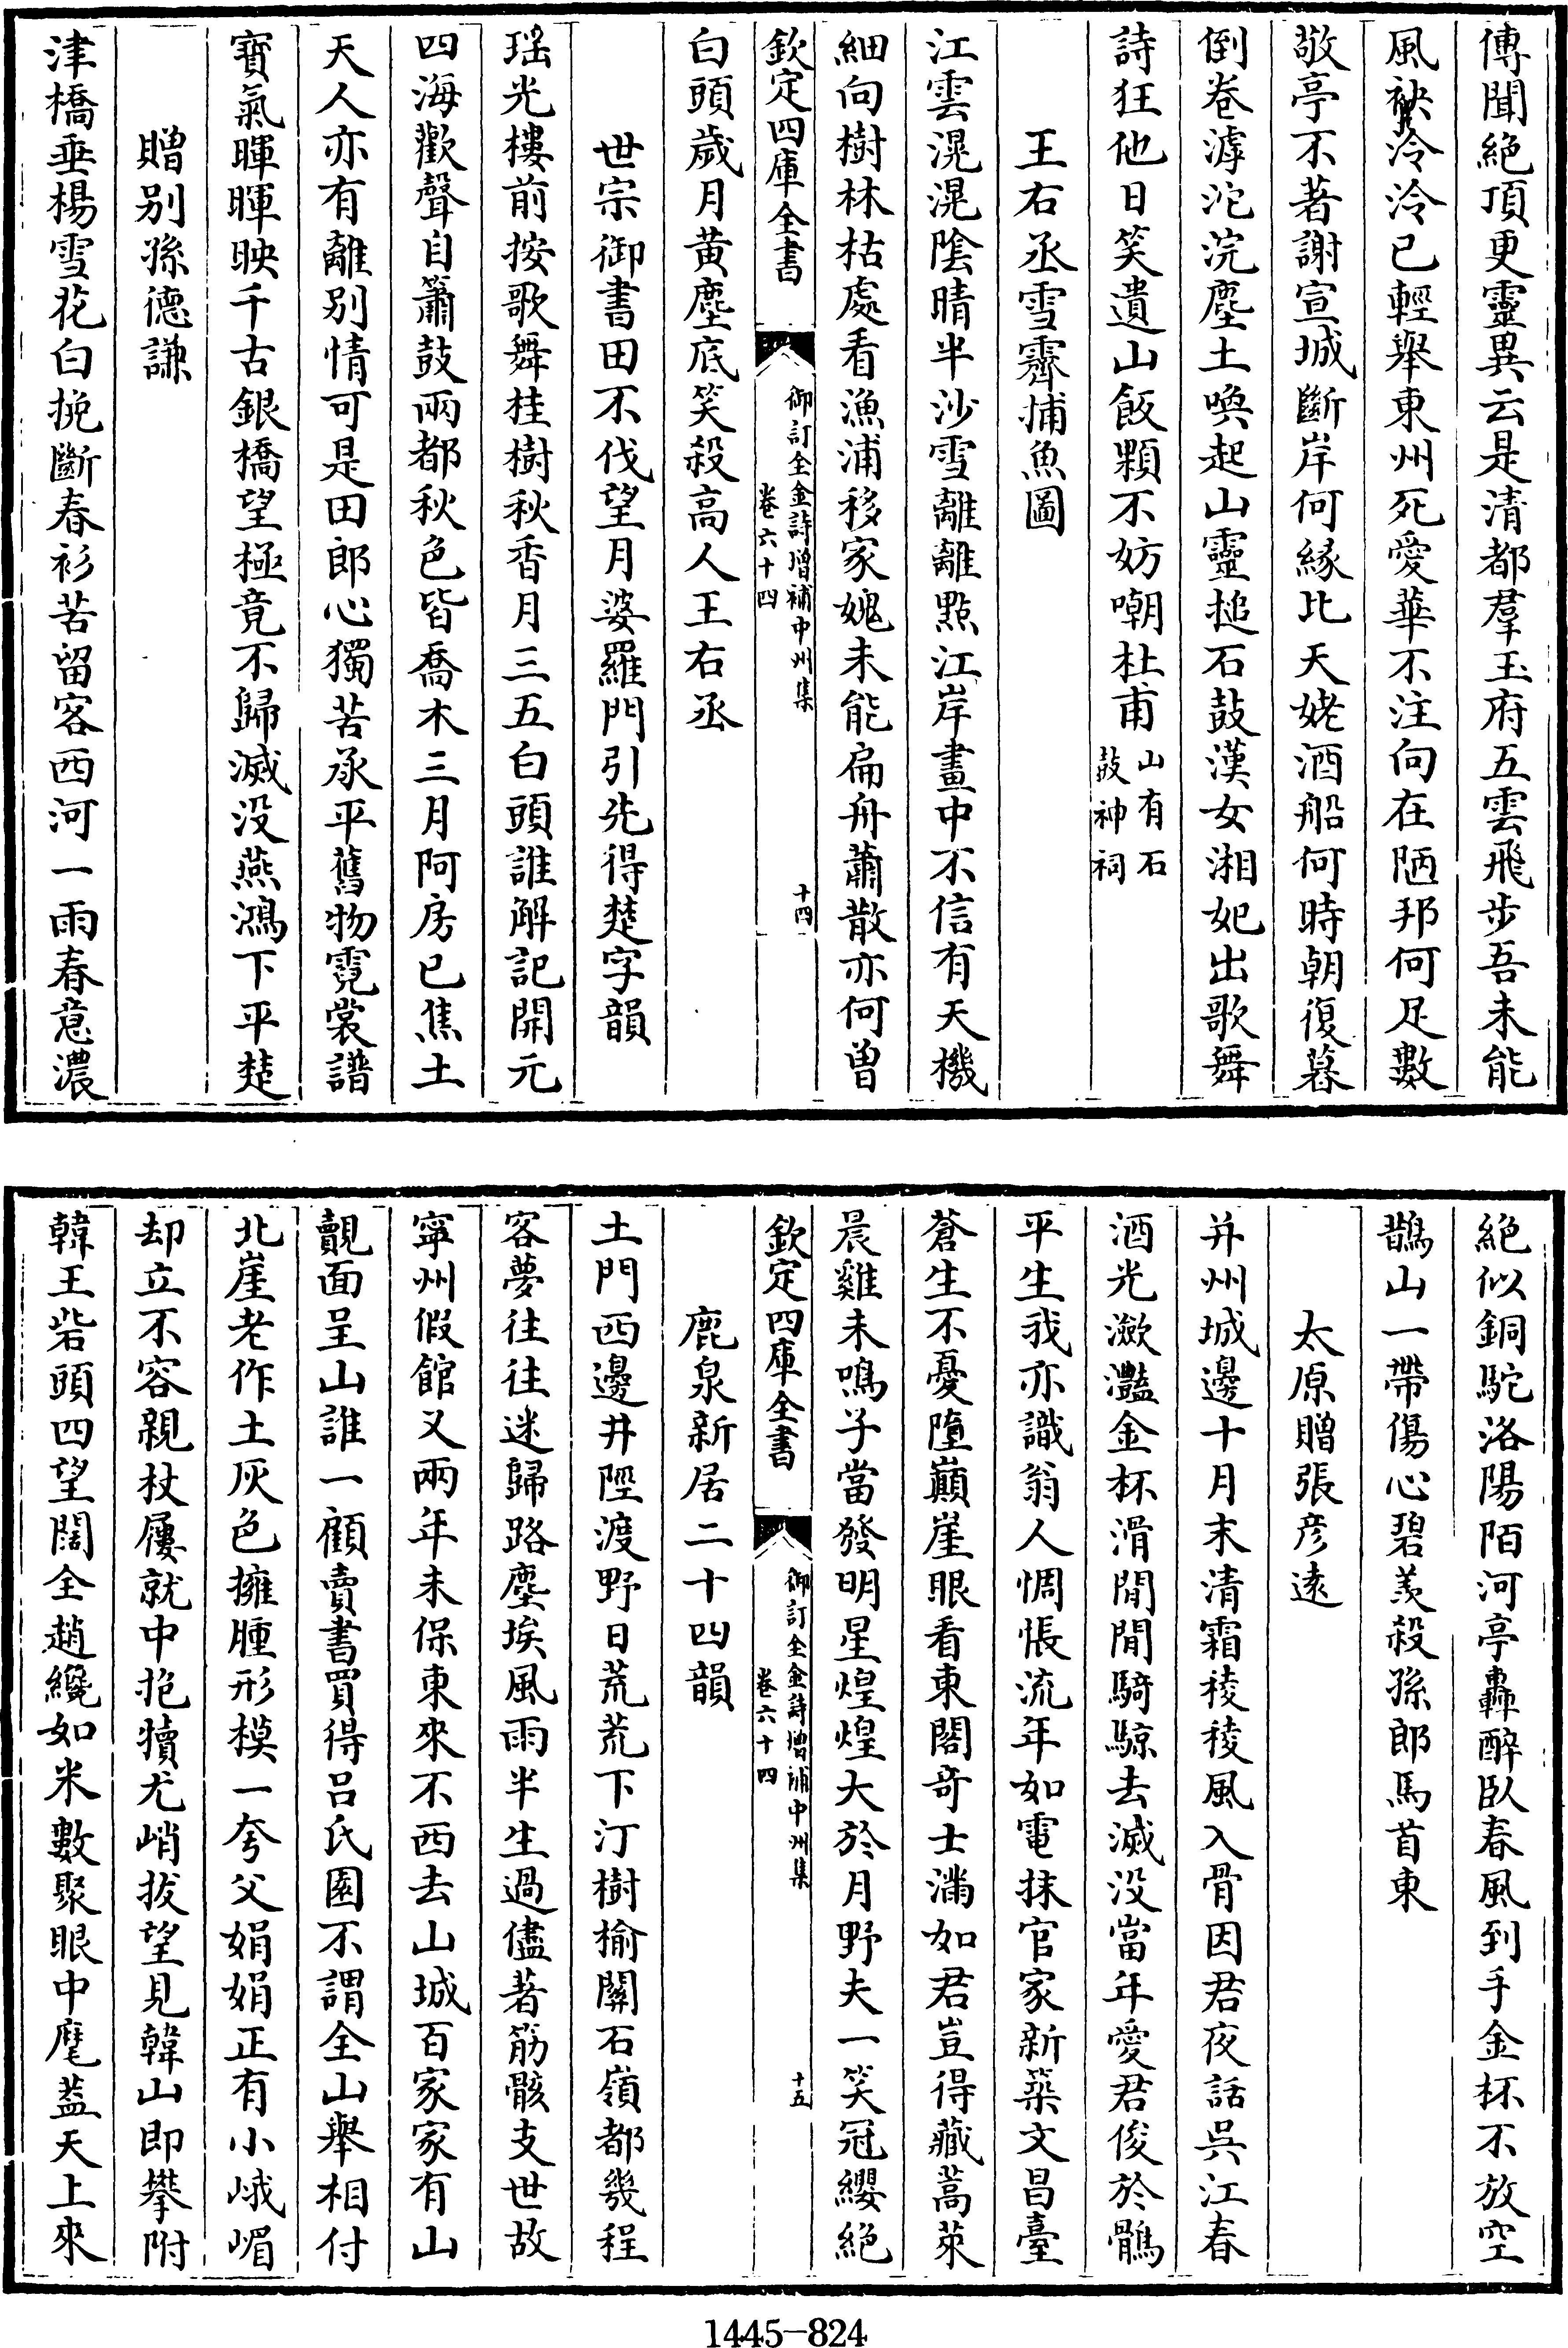 傳聞絶頂更靈異云是清都羣玉府五雲飛步吾未能
風袂泠泠已輕舉東州死愛華不注向在陋邦何足數
敬亭不著謝宣城斷岸何緣比天姥酒船何時朝復暮
倒卷滹沱浣塵土喚起山靈搥石鼓漢女湘妃出歌舞
詩狂他日笑遺山飯顆不妨嘲杜甫山有石鼓神祠
王右丞雪霽捕魚圖
江雲滉滉陰晴半沙雪離離點江岸畫中不信有天機
細向樹林枯處看漁浦移家媿未能扁舟蕭散亦何曾
欽定四庫全書
御訂全金詩增補中州集
卷六十四
十四
白頭歲月黄塵底笑殺高人王右丞
世宗御書田不伐望月婆羅門引先得楚字韻
瑤光樓前按歌舞桂樹秋香月三五白頭誰解記開元
四海歡聲自簫鼓兩都秋色皆喬木三月阿房已焦土
天人亦有離别情可是田郎心獨苦承平舊物霓裳譜
寶氣暉暉映千古銀橋望極竟不歸滅没燕鴻下平楚
贈别孫德謙
津橋垂楊雪花白挽斷春衫苦留客西河一雨春意濃
絶似銅駝洛陽陌河亭轟醉臥春風到手金杯不放空
鵲山一帶傷心碧羨殺孫郎馬首東
太原贈張彦遠
并州城邊十月末清霜稜稜風入骨因君夜話吳江春
酒光瀲灩金杯滑閒閒騎鯨去滅没當年愛君俊於鶻
平生我亦識翁人惆悵流年如電抹官家新築文昌臺
蒼生不憂墮巔崖眼看東閣奇士滿如君豈得藏蒿萊
晨雞未鳴子當發明星煌煌大於月野夫一笑冠纓絶
欽定四庫全書
御訂全金詩增補中州集
卷六十四
十五
鹿泉新居二十四韻
土門西邊井陘渡野日荒荒下汀樹榆關石嶺都幾程
客夢往往迷歸路塵埃風雨半生過儘著筋骸支世故
寧州假館又兩年未保東來不西去山城百家家有山
覿面呈山誰一顧賣書買得吕氏園不謂全山舉相付
北崖老作土灰色擁腫形模一夸父娟娟正有小峨嵋
却立不容親杖屨就中抱犢尤峭拔望見韓山即攀附
韓王砦頭四望闊全趙纔如米數聚眼中麾蓋天上來
1445-824